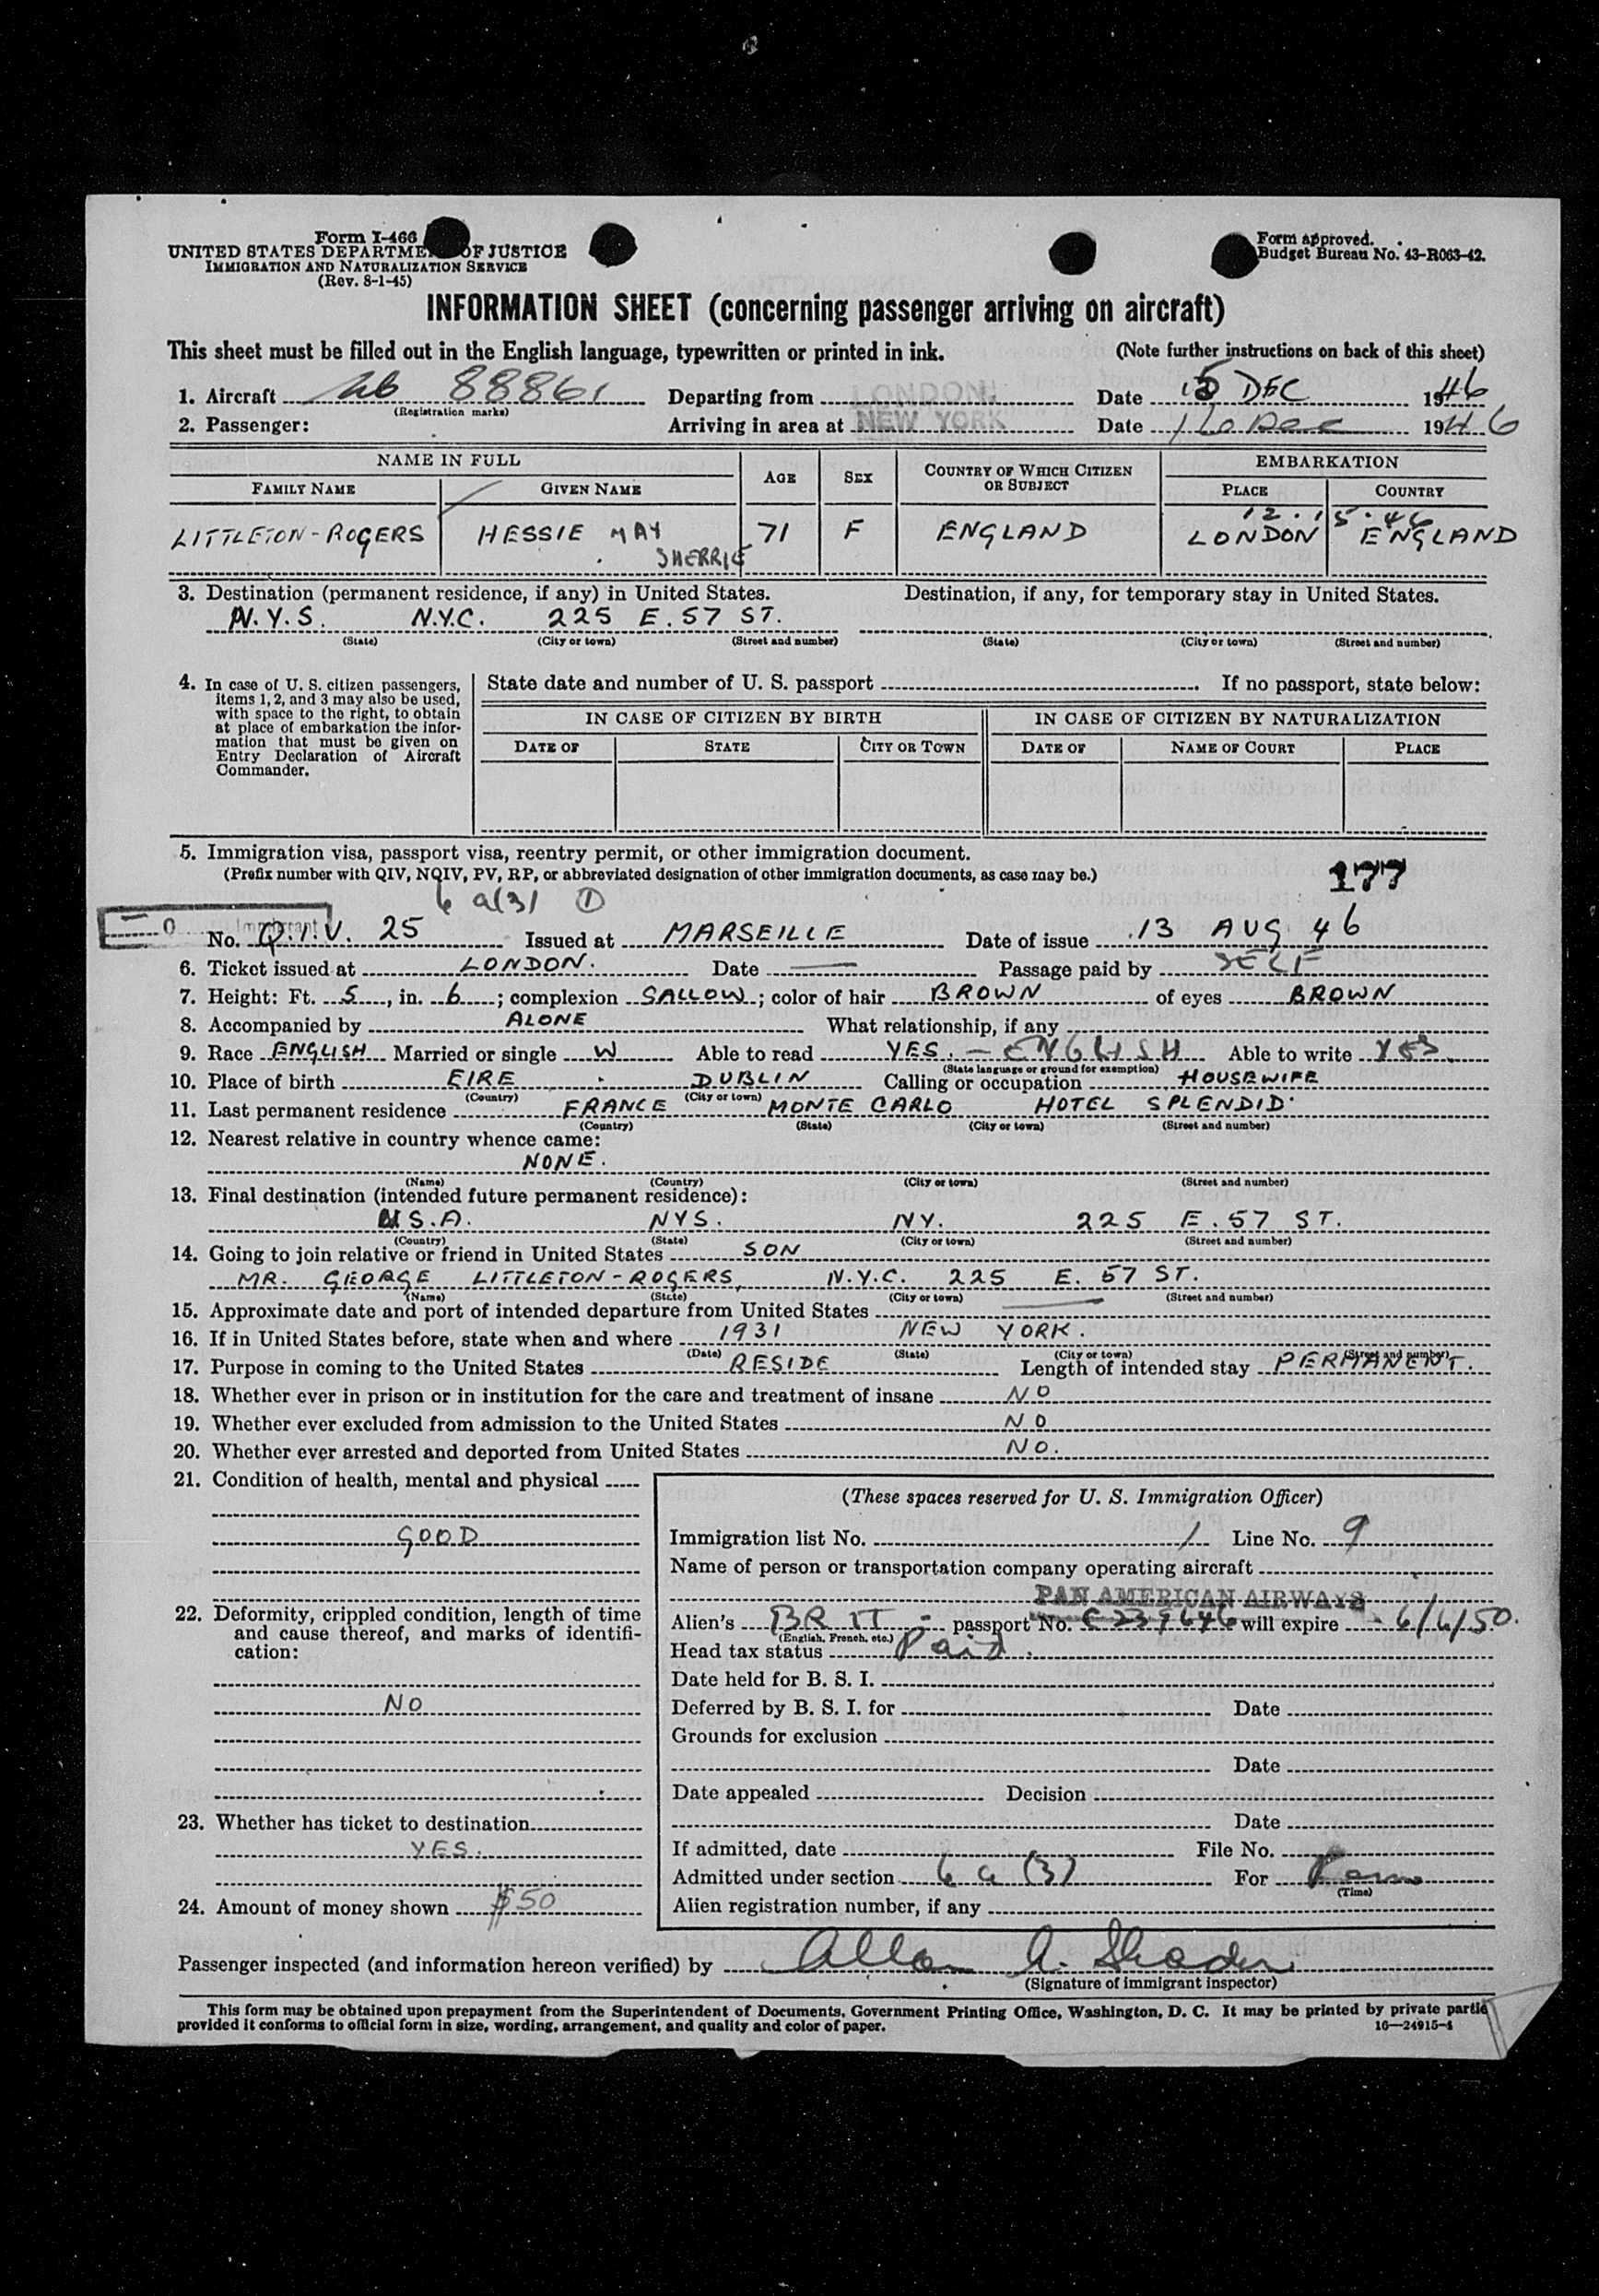 Form I-466
UNITED STATES DEPARTMENT OF JUSTICE
IMMIGRATION AND NATURALIZATION SERVICE
(Rev. 8-1-45)
Form approved.
Budget Bureau No. 43-R063-42.
INFORMATION SHEET (concerning passenger arriving on aircraft)
This sheet must be filled out in the English language, typewritten or printed in ink. (Note further instructions on back of this sheet)
1. Aircraft 88861 Departing from LONDON Date 15 DEC 1946
(Registration marks)
2. Passenger: Arriving in area at NEW YORK Date 16 Dec 1946
NAME IN FULL AGE SEX COUNTRY OF WHICH CITIZEN OR SUBJECT EMBARKATION
FAMILY NAME GIVEN NAME PLACE COUNTRY
12.15.46
LITTLETON-ROGERS HESSIE MAY 71 F ENGLAND LONDON ENGLAND
SHERRIE
3. Destination (permanent residence, if any) in United States. Destination, if any, for temporary stay in United States.
N.Y.S. N.Y.C. 225 E. 57 ST.
(State) (City or town) (Street and number) (State) (City or town) (Street and number)
4. In case of U. S. citizen passengers, items 1, 2, and 3 may also be used, with space to the right, to obtain at place of embarkation the information that must be given on Entry Declaration of Aircraft Commander.
State date and number of U. S. passport If no passport, state below:
IN CASE OF CITIZEN BY BIRTH IN CASE OF CITIZEN BY NATURALIZATION
DATE OF STATE CITY OR TOWN DATE OF NAME OF COURT PLACE
5. Immigration visa, passport visa, reentry permit, or other immigration document.
(Prefix number with QIV, NQIV, PV, RP, or abbreviated designation of other immigration documents, as case may be.) 177
6 a(3) 1
Immigrant
No. Q.I.V. 25 Issued at MARSEILLE Date of issue 13 AUG 46
6. Ticket issued at LONDON. Date — Passage paid by SELF
7. Height: Ft. 5, in. 6; complexion SALLOW; color of hair BROWN of eyes BROWN
8. Accompanied by ALONE What relationship, if any
9. Race ENGLISH Married or single W Able to read YES. - ENGLISH Able to write YES.
(State language or ground for exemption)
10. Place of birth EIRE DUBLIN Calling or occupation HOUSEWIFE
(Country) (City or town)
11. Last permanent residence FRANCE MONTE CARLO HOTEL SPLENDID
(Country) (State) (City or town) (Street and number)
12. Nearest relative in country whence came:
NONE.
(Name) (Country) (City or town) (Street and number)
13. Final destination (intended future permanent residence):
U.S.A. NYS. NY. 225 E. 57 ST.
(Country) (State) (City or town) (Street and number)
14. Going to join relative or friend in United States SON
MR. GEORGE LITTLETON-ROGERS, N.Y.C. 225 E. 57 ST.
(Name) (State) (City or town) (Street and number)
15. Approximate date and port of intended departure from United States —
16. If in United States before, state when and where 1931 NEW YORK.
(Date) (State) (City or town) (Street and number)
17. Purpose in coming to the United States RESIDE Length of intended stay PERMANENT.
18. Whether ever in prison or in institution for the care and treatment of insane NO
19. Whether ever excluded from admission to the United States NO
20. Whether ever arrested and deported from United States NO.
21. Condition of health, mental and physical
GOOD
22. Deformity, crippled condition, length of time and cause thereof, and marks of identification:
NO
23. Whether has ticket to destination
YES.
24. Amount of money shown $50
(These spaces reserved for U. S. Immigration Officer)
Immigration list No. 1 Line No. 9
Name of person or transportation company operating aircraft
PAN AMERICAN AIRWAYS
Alien's BRIT - passport No. C 239646 will expire 6/6/50.
(English, French, etc.)
Head tax status Paid.
Date held for B. S. I.
Deferred by B. S. I. for Date
Grounds for exclusion
Date
Date appealed Decision
Date
If admitted, date File No.
Admitted under section 6 a (3) For Perm
(Time)
Alien registration number, if any
Passenger inspected (and information hereon verified) by Allan A.
(Signature of immigrant inspector)
This form may be obtained upon prepayment from the Superintendent of Documents, Government Printing Office, Washington, D. C. It may be printed by private partie
provided it conforms to official form in size, wording, arrangement, and quality and color of paper. 16—24915-1